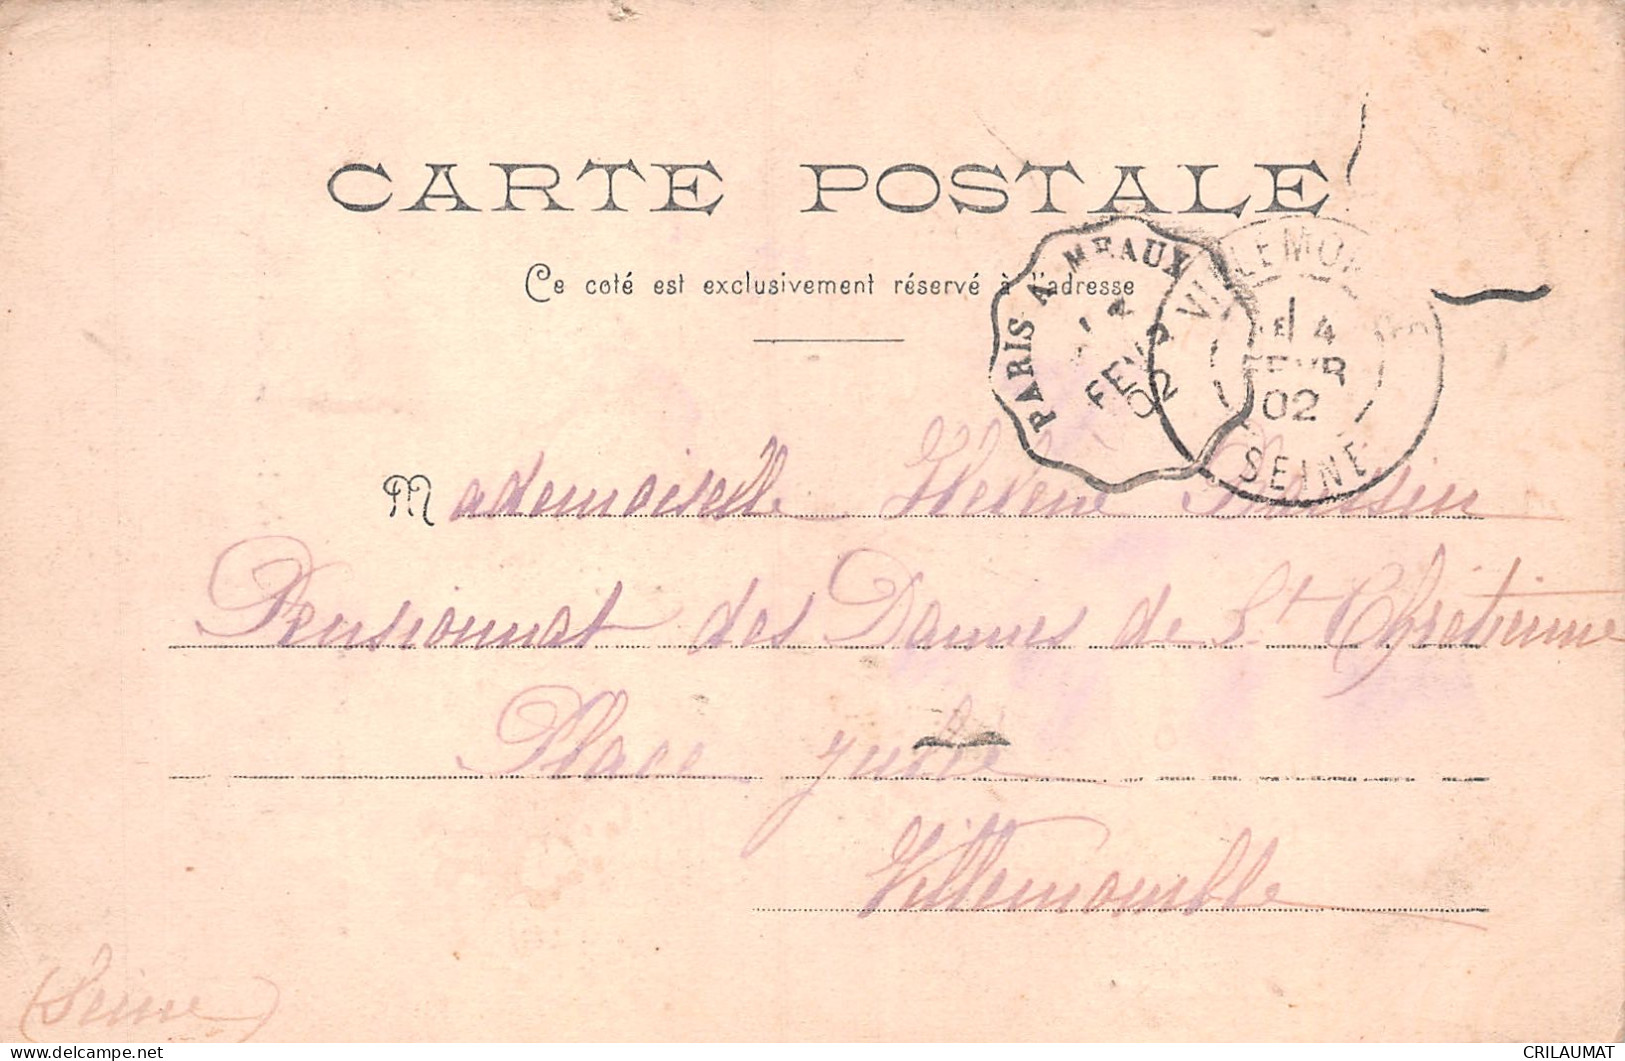 CARTE POSTALE
Ce coté est exclusivement réservé à l'adresse
PARIS A MEAUX
FEVR
02
VILLEMOMBLE
4
FEVR
02
SEINE
Mademoiselle Hélène
Pensionnat des Dames de St Chrétienne
Place
Villemomble
(Seine)
delcampe.net
CRILAUMAT